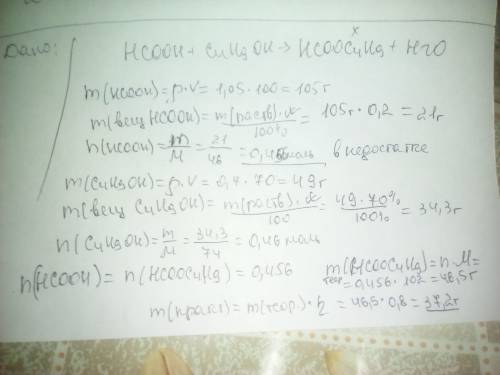 Дано:
x
HCOOH + C4H9OH → HCOOC4H9 + H2O
m(HCOOH) = ρ·V = 1,05·100 = 105г
m(вещ HCOOH) = m(раств)·ω/100% = 105г·0,2 = 21г
n(HCOOH) = m/M = 21/46 = 0,456моль в недостатке
m(C4H9OH) = ρ·V = 0,7·70 = 49г
m(вещ C4H9OH) = m(раств)·ω/100 = 49·70%/100% = 34,3г
n(C4H9OH) = m/M = 34,3/74 = 0,46 моль
n(HCOOH) = n(HCOOC4H9) = 0,456
m теор(HCOOC4H9) = n·M =
= 0,456·102 = 46,5г
m(практ) = m(теор)·η = 46,5·0,8 = 37,2г